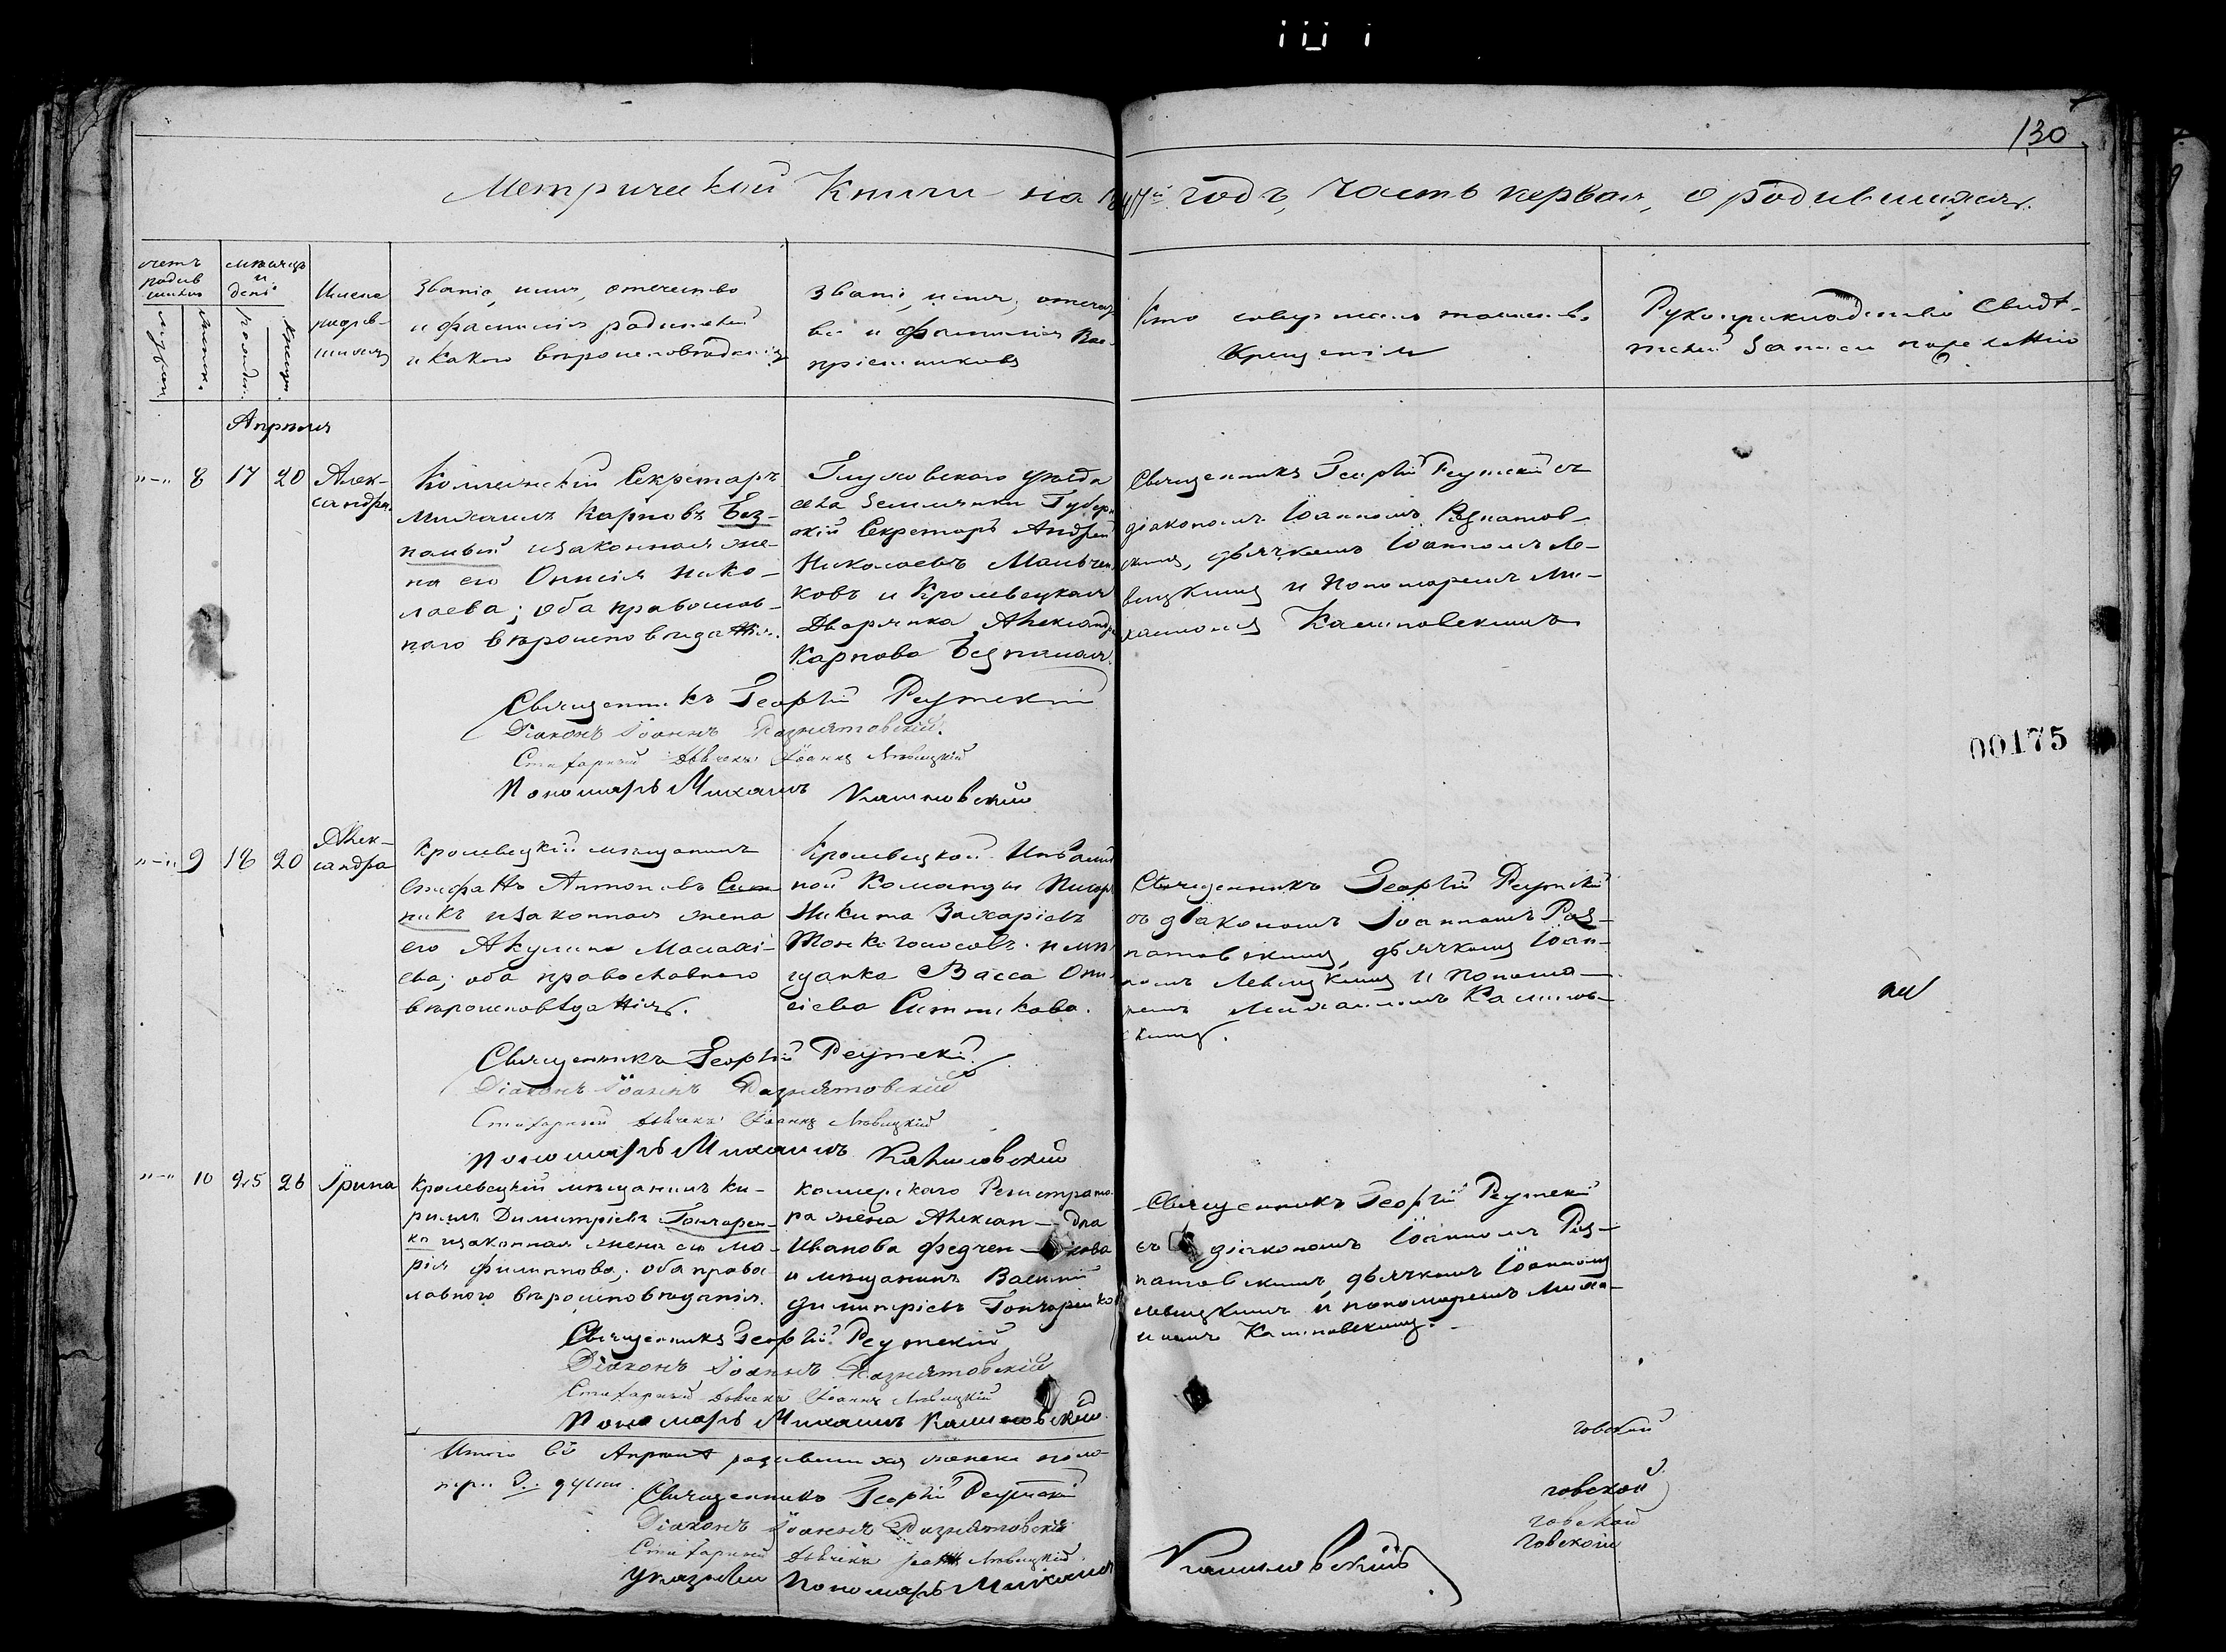 130
Метрической Книги на годъ, часть первая, о родившихся.
счетъ родив
шихся
мѣсяцъ
и
день
Имена
родив-
шихся
Званіе, имя, отечество
и фамилія родителей
и какого вѣроисповѣданія
Званіе, имя, отечест
во и фамилія Вос-
пріемниковъ
Кто совершалъ таинство
Крещенія
Рукоприкладство свидѣ-
телей записи по желанію
Апрѣля
8 17 20
Алек-
сандра
Коллежскій Секретарь
Михаилъ Карповъ Без-
палый и законная же-
на его Николаева; оба православ-
наго вѣроисповѣданія.
Глуховского уѣзда
села Землянки Губерн
скій Секретарь Андрей
Николаевъ Мальчен
ковъ и Кролевецкая
Дворянка Александра
Карпова Безпалая.
Священникъ Георгій Реутскій съ
діакономъ Іоанномъ Рознатов-
скимъ, дьячкомъ Іоанномъ Ле-
вицкимъ и Пономаремъ Ми-
хаиломъ Калиновскимъ
Священникъ Георгій Реутскій
Діаконъ Іоаннъ Рознятовскій
Стихарный Дьячекъ Іоаннъ Левицкій
Пономарь Михаилъ Калиновскій
00175
9 18 20
Алек-
сандра
Кролевецкій мѣщанинъ
Стефанъ Антоновъ Сит-
никъ и законная жена
его Акулина Малахі-
ева; оба православнаго
вѣроисповѣданія.
Кролевецкой Инвалид
ной Команды Писарь
Никита Захаріевъ
Тонкоголосовъ и мѣ
щанка Васса
Ситникова.
Священникъ Георгій Реутскій
съ діакономъ Іоанномъ Роз-
натовскимъ, дьячкомъ Іоан-
номъ Левицкимъ и Понома-
ремъ Михаиломъ Калинов-
скимъ.
Священникъ Георгій Реутскій
Діаконъ Іоаннъ Рознятовскій
Стихарный Дьячекъ Іоаннъ Левицкій
Пономарь Михаилъ Калиновскій
10 25 26
Ірина
Кролевецкій мѣщанинъ Ки-
рилъ Димитріевъ Гончарен-
ко и законная жена его Ма-
рія Филиппова; оба право-
славного вѣроисповѣданія.
Коллежского Регистрато-
ра жена Алексан-дра
Иванова Федчен-кова
и мѣщанинъ Василій
Димитріевъ Гончаренко
Священникъ Георгій Реутскій
съ діакономъ Іоанномъ Роз-
натовскимъ, дьячкомъ Іоанномъ
Левицкимъ и пономаремъ Миха-
иломъ Калиновскимъ.
Священникъ Георгій Реутскій
Діаконъ Іоаннъ Рознятовскій
Стихарный Дьячекъ Іоаннъ Левицкій
Пономарь Михаилъ Калиновскій
Итого въ Апрѣлѣ родившихся женска пола
три 3. души.
Священникъ Георгій Реутскій
Діаконъ Іоаннъ Рознятовскій
Стихарный Дьячекъ Іоаннъ Левицкій
Указный Пономарь Михаилъ Калиновскій
говской
говской
говской
говской